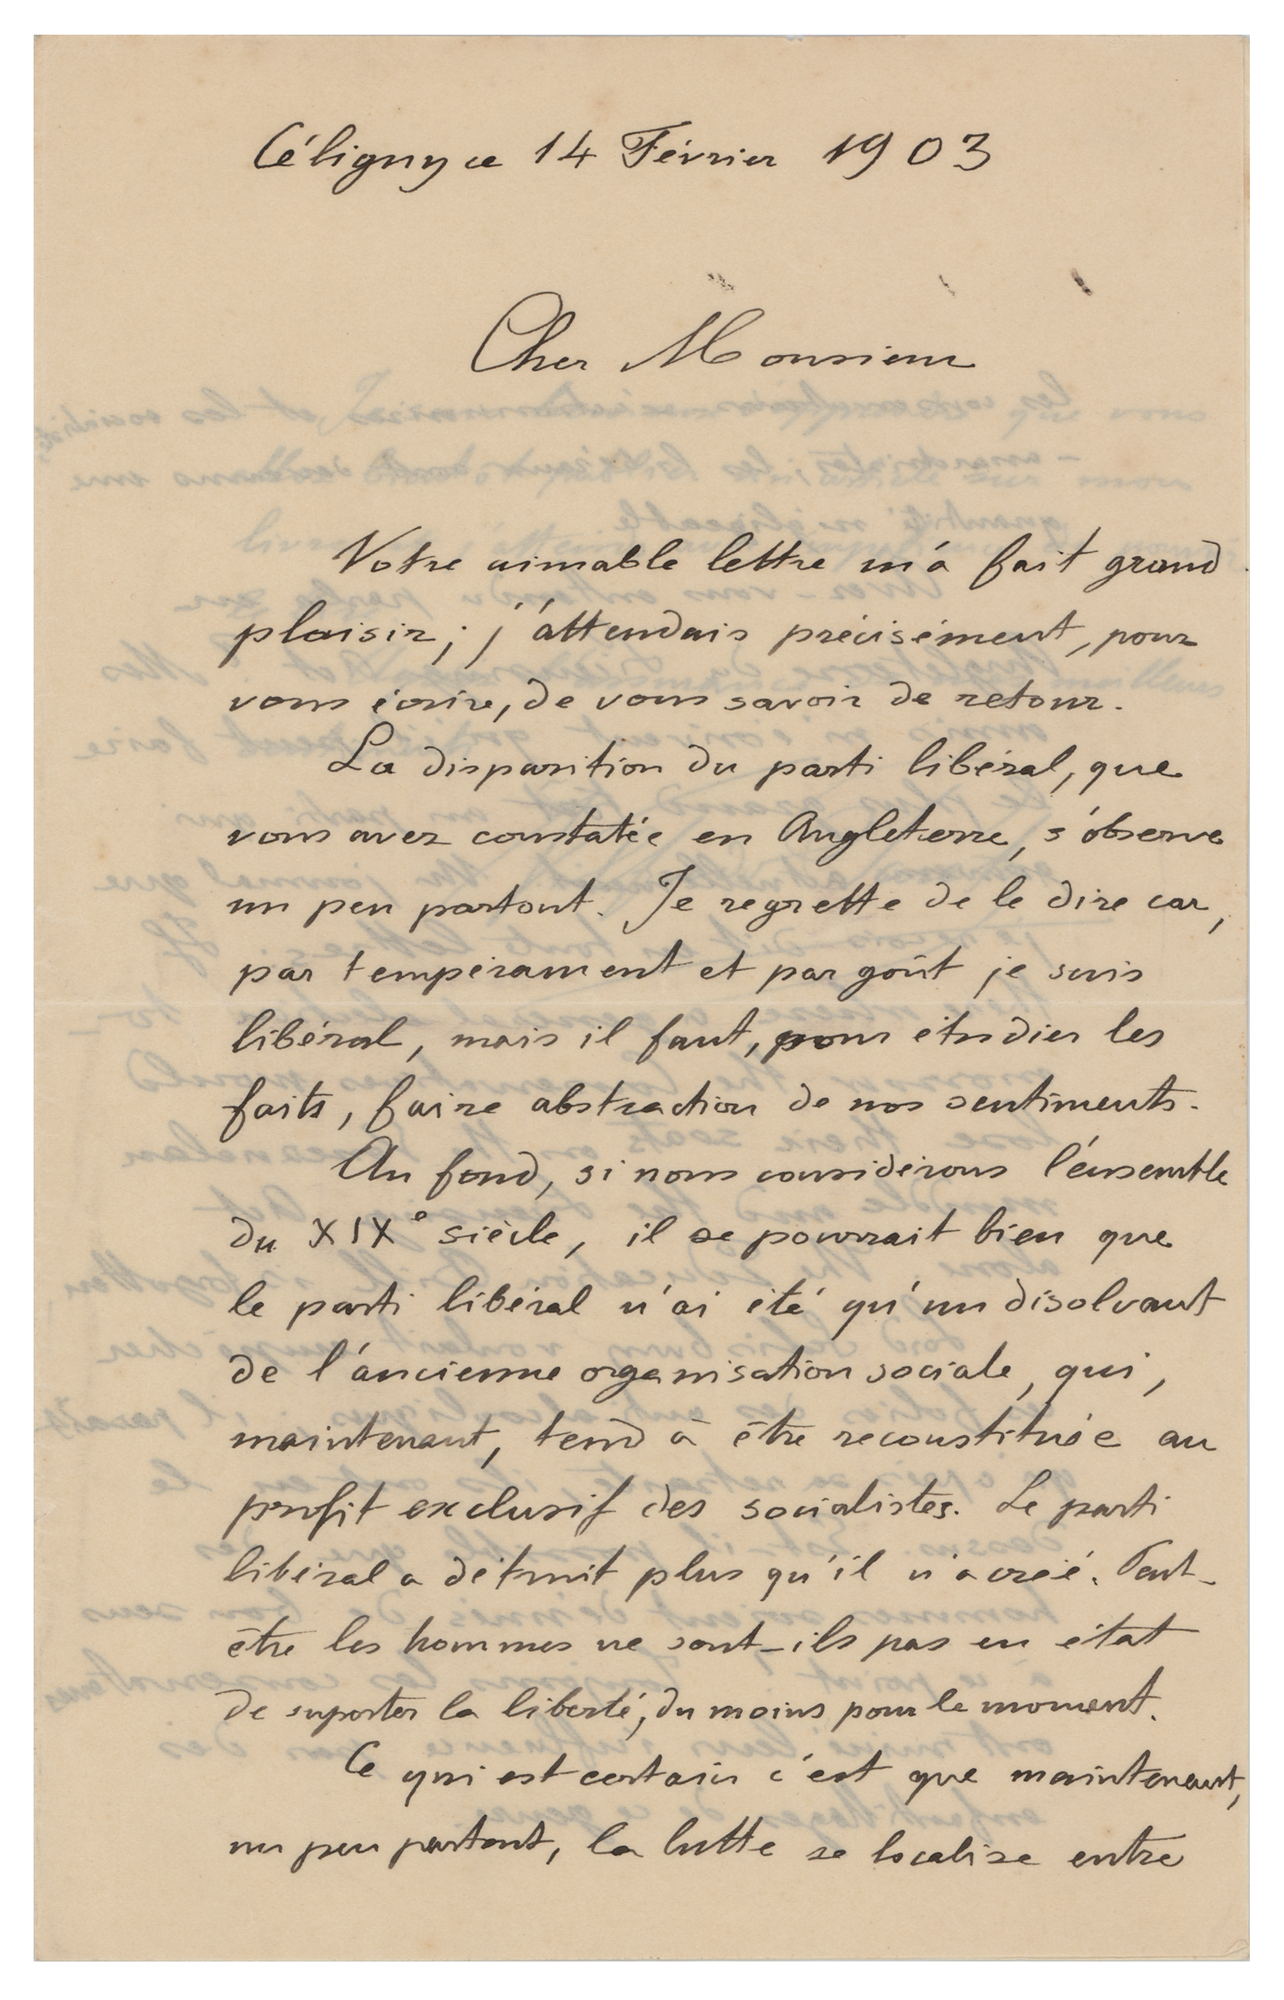 Céligny ce 14 Février 1903
Cher Monsieur
Votre aimable lettre m'a fait grand
plaisir ; j'attendais précisément, pour
vous écrire, de vous savoir de retour.
La disparition du parti libéral, que
vous avez constatée en Angleterre, s'observe
un peu partout. Je regrette de le dire car,
par tempérament et par goût je suis
libéral, mais il faut, pour étudier les
faits, faire abstraction de nos sentiments.
Au fond, si nous considérons l'ensemble
du XIXe siècle, il se pourrait bien que
le parti libéral n'ai été qu'un disolvant
de l'ancienne organisation sociale, qui,
maintenant, tend à être reconstituée au
profit exclusif des socialistes. Le parti
libéral a détruit plus qu'il n'a créé. Peut-
être les hommes ne sont-ils pas en état
de suporter la liberté, du moins pour le moment.
Ce qui est certain c'est que maintenant,
un peu partout, la lutte se localise entre